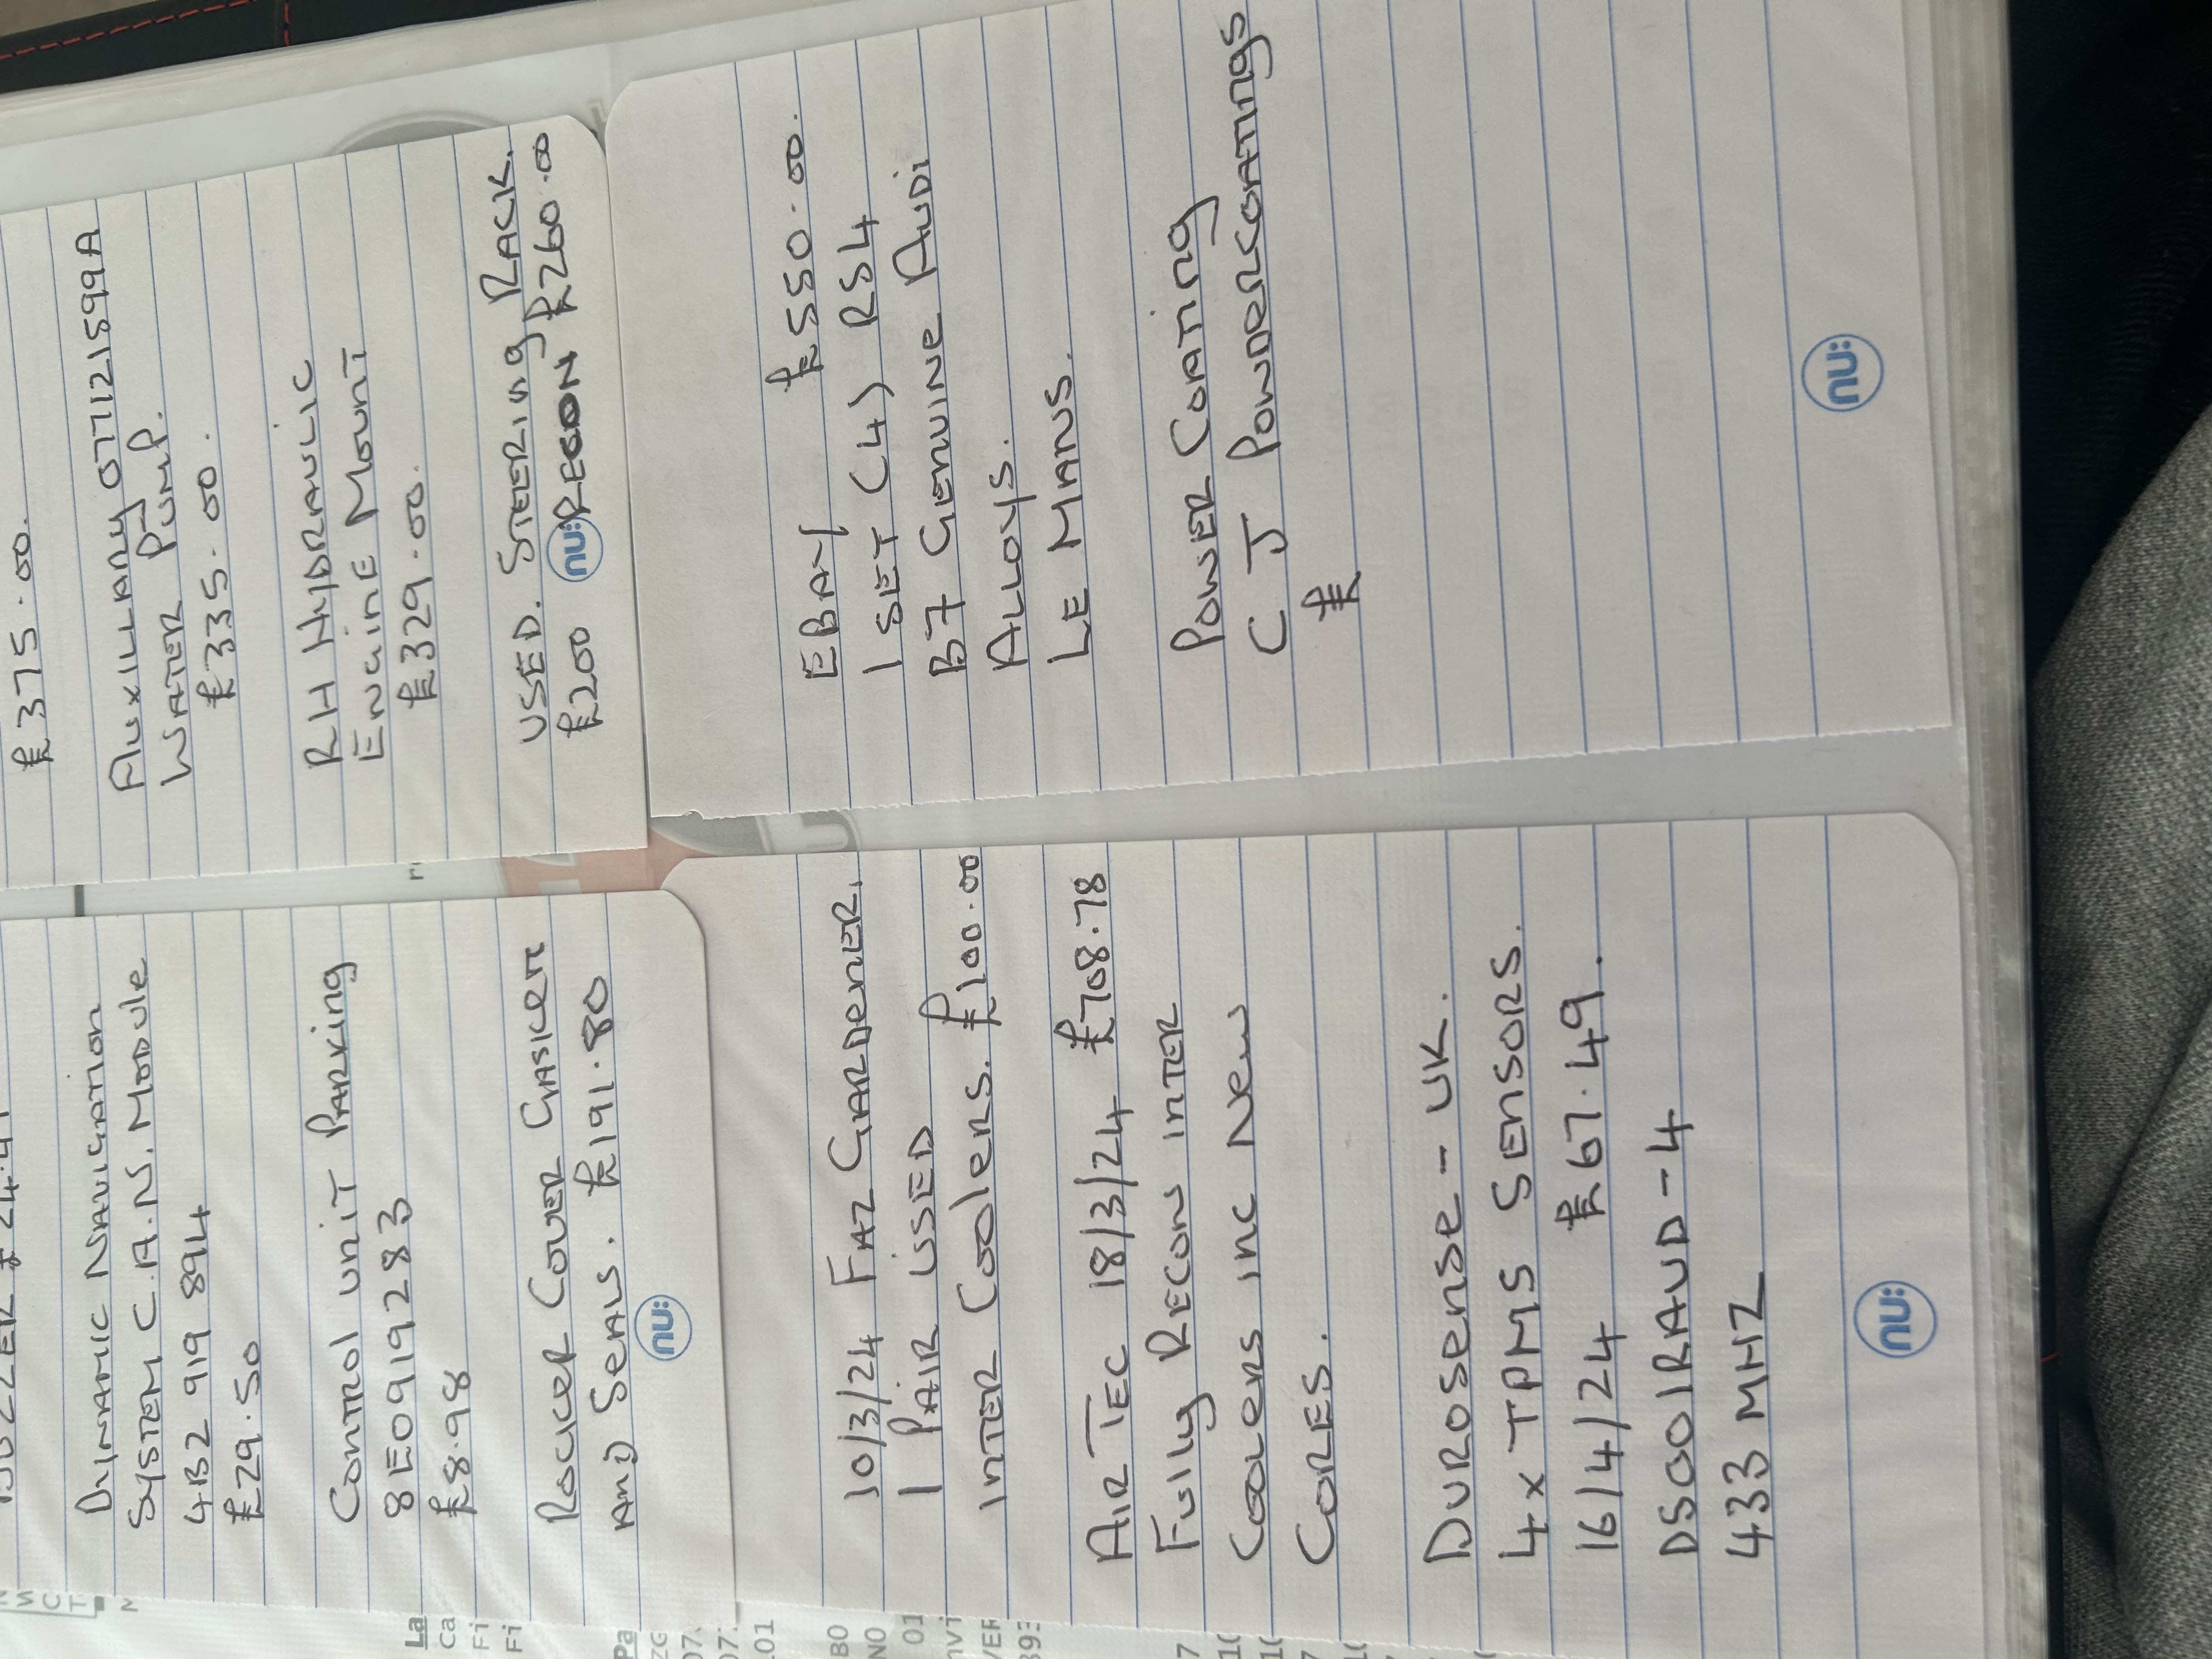 Dynamic Navigation
System C.A.N. Module
4B2 919 894
£29.50
Control unit Parking
8E0919283
£8.98
Rocker Cover Gasket
And Seals. £191.80
nu:
£375.00.
Auxillary 077121599A
Water Pump.
£335.00.
RH Hydraulic
Engine Mount
£329.00.
USED. Steering Rack.
£200 nu: RECON £260.00
10/3/24 Faz Gardener.
1 Pair USED
Inter Coolers. £100.00
Air Tec 18/3/24 £708.78
Fully Recon inter
Coolers inc New
Cores.
Durosense - UK.
4x TPMS Sensors.
16/4/24 £67.49.
DS001RAUD-4
433 MHZ
nu:
EBay £550.00.
1 SET (4) RS4
B7 Genuine Audi
Alloys.
Le Mans.
Power Coating
C J Powdercoatings
£
nu: